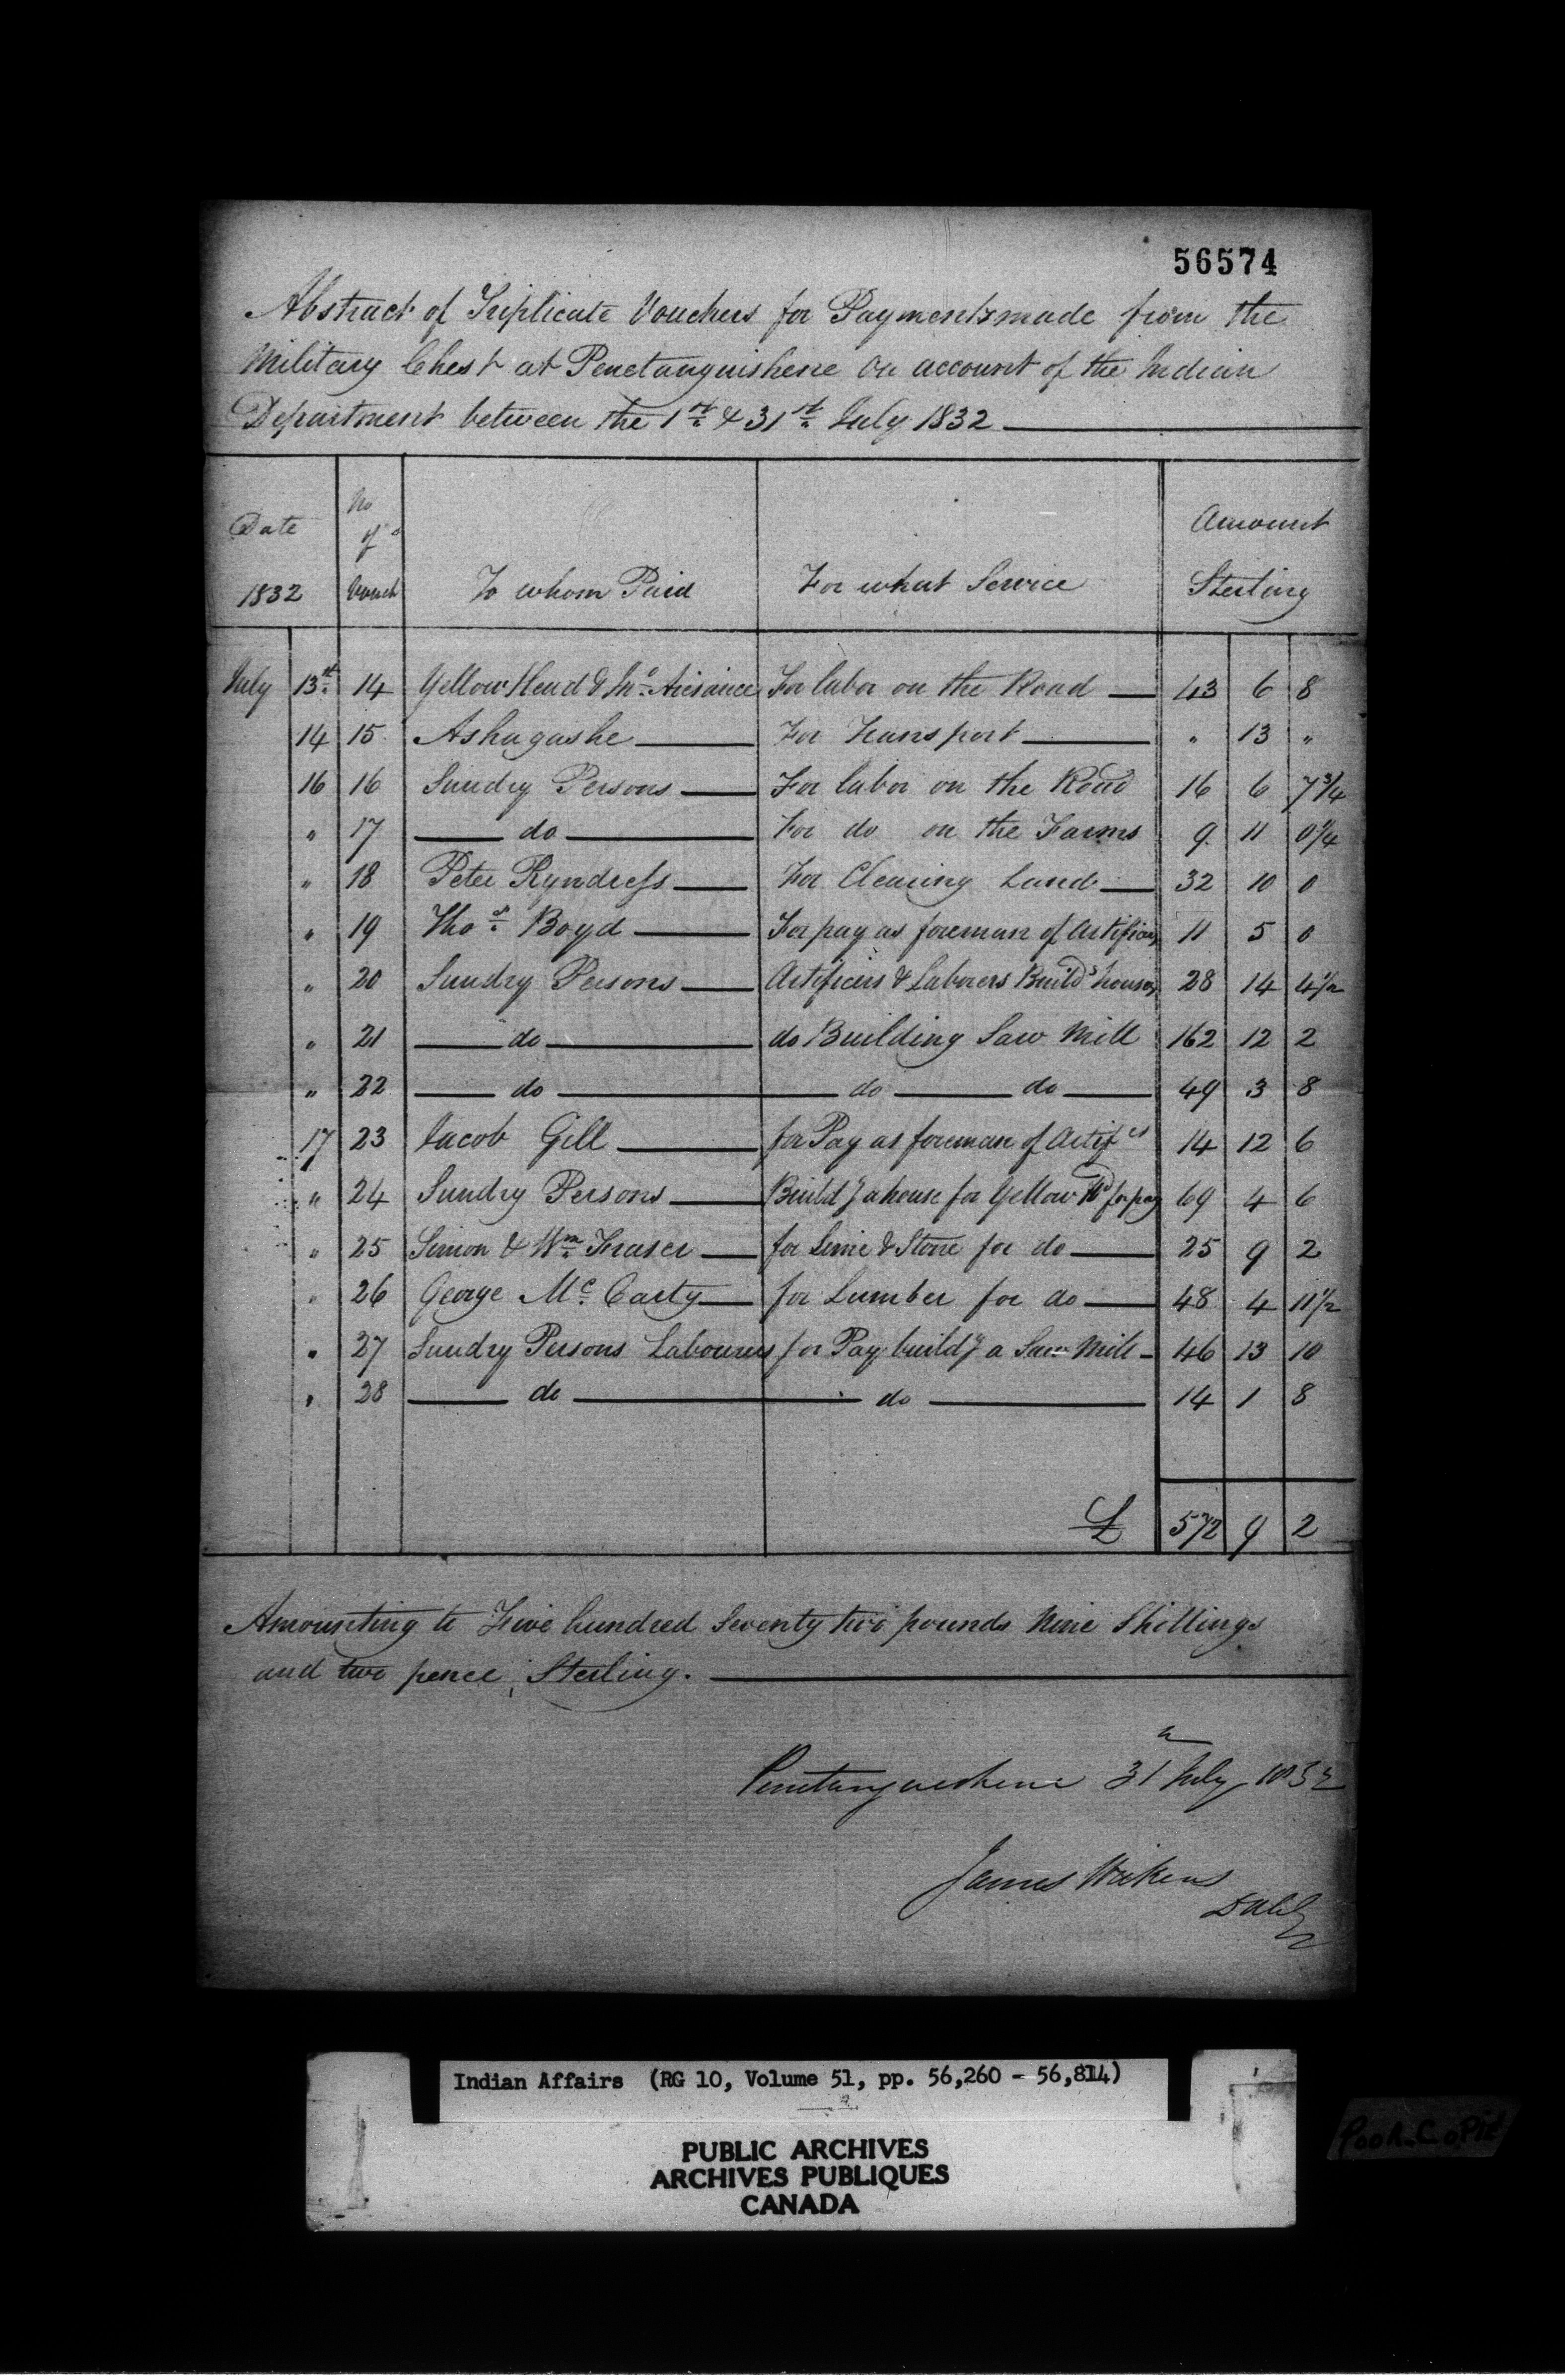 56574
Abstract of Triplicate Vouchers for Payments made from the
Military Chest at Penetanguishene on account of the Indian
Department between the 1st & 31st July 1832
Date 1832 No of Vouch To whom Paid For what Service Amount Sterling
July 13th 14 Yellow Head & Jno. Aisaince For labor on the Road 43 6 8
14 15 Ashagashe For Transport " 13 "
16 16 Sundry Persons For labor on the Road 16 6 7 3/4
" 17 do For do on the Farms 9 11 0 1/4
" 18 Peter Ryndress For Clearing Land 32 10 0
" 19 Thos. Boyd For pay as foreman of Artificers 11 5 0
" 20 Sundry Persons Artificers & Laborers Buildg houses 28 14 4 1/2
" 21 do do Building Saw Mill 162 12 2
" 22 do do do 49 3 8
17 23 Jacob Gill for Pay as foreman of Artifcs 14 12 6
" 24 Sundry Persons Buildg a house for Yellow Hd for pay 69 4 6
" 25 Simon & Wm. Fraser for Lime & Stone for do 25 9 2
" 26 George Mc. Carty for Lumber for do 48 4 11 1/2
" 27 Sundry Persons Labourers for Pay buildg a Saw Mill 46 13 10
" 28 do do 14 1 8
£ 572 9 2
Amounting to Five hundred Seventy two pounds Nine Shillings
and two pence, Sterling.
Penetanguishene 31 July 1832
James Wickens
Indian Affairs (RG 10, Volume 51, pp. 56,260 - 56,814)
PUBLIC ARCHIVES
ARCHIVES PUBLIQUES
CANADA
POOR COPIE